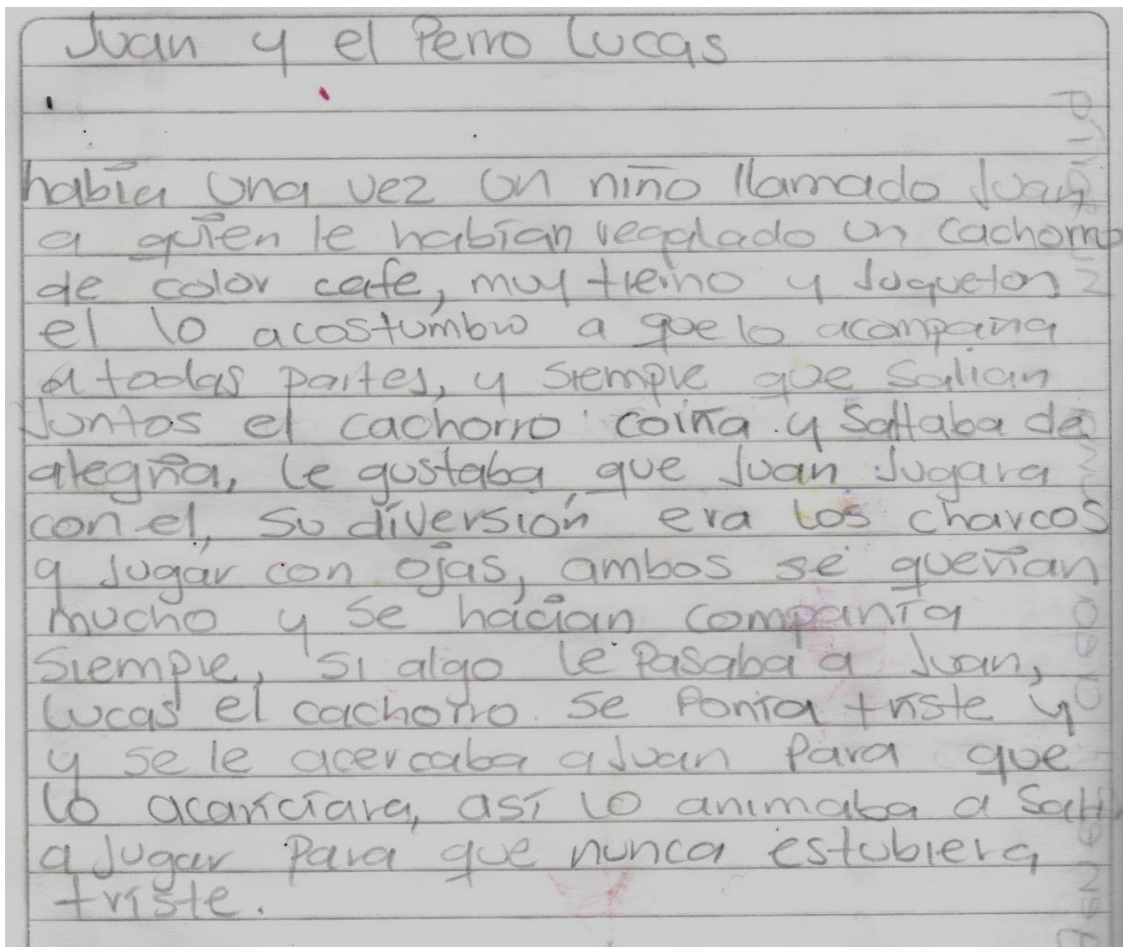 Juan y el Perro Lucas
había una vez un niño llamado Juan
a quien le habían regalado un cachorro
de color cafe, muy tierno y Jugueton
el lo acostumbro a que lo acompaña
a todas partes, y siempre que salian
Juntos el cachorro corría y saltaba de
alegría, le gustaba que Juan Jugara
con el, su diversión era los charcos
y Jugar con ojas, ambos se querían
mucho y se hacían companía
Siempre, si algo le Pasaba a Juan,
Lucas el cachorro se Ponía triste y
y se le acercaba a Juan Para que
lo acaríciara, así lo animaba a Salir
a Jugar Para que nunca estubiera
triste.